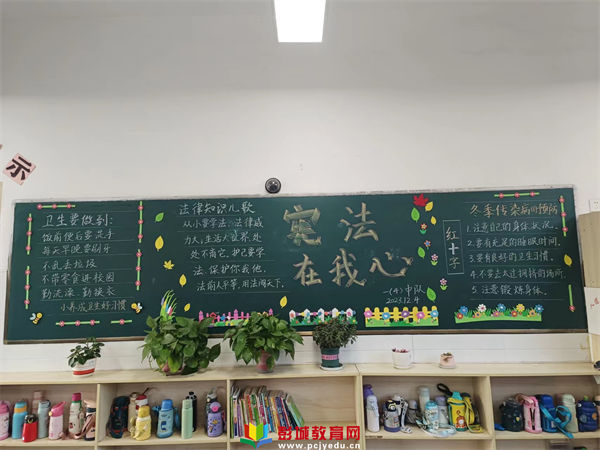 示
卫生要做到:
饭前便后要洗手
每天早晚要刷牙
不乱丢垃圾
不带零食进校园
勤洗澡 勤换衣
小养成卫生好习惯
法律知识儿歌
从小要学法,法律威
力人,生活人世界,处
处不离它,护己要学
法,保护你我他,
法前人平等,用法闯天下。
宪法
在我心
一(4)中队
2023.12.4
红十字
冬季传染病的预防
1.注意自己的身体状况。
2.要有充足的睡眠时间。
3.要有良好的卫生习惯。
4.不要去人过拥挤的场所。
5.注意锻炼身体。
彭城教育网
www.pcjyedu.cn